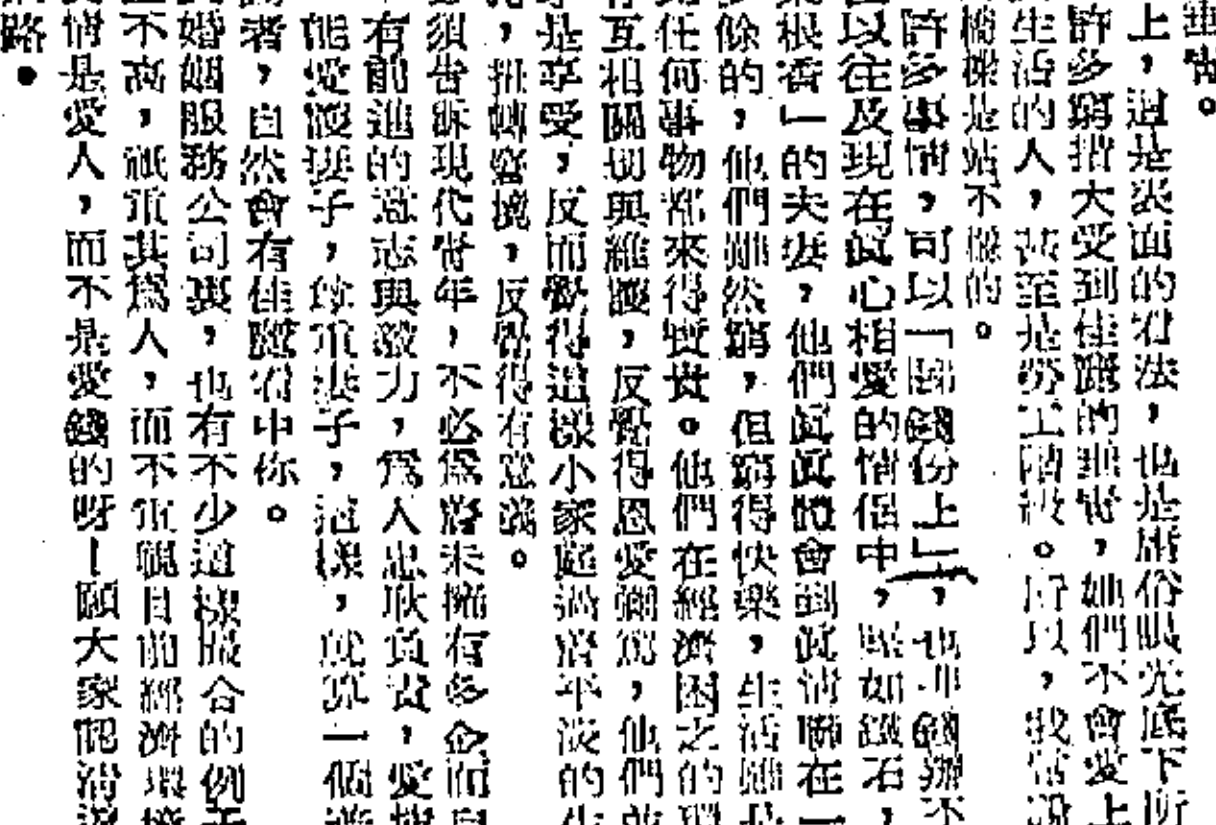 垂青。
上，這是表面的看法，也是庸俗眼光底下所
許多窮措大受到佳麗的垂青，她們不會愛上
生活的人，甚至是勞工階級。所以，我常說
是站不穩的。
許多事情，可以「睇錢份上」，也非錢辦不
以往及現在眞心相愛的情侶中，堅如鐵石，
根香」的夫妻，他們眞眞體會到眞情聯在一
餘的，他們雖然窮，但窮得快樂，生活雖是
任何事物都來得寶貴。他們在經濟困乏的環
互相關切與維護，反覺得恩愛彌篤，他們並
是享受，反而覺得這樣小家庭過着平淡的生
，扭轉窘境，反覺得有意義。
須告訴現代青年，不必爲將來擁有多金而
有前進的意志與毅力，爲人忠耿負責，愛
能愛護妻子，尊重妻子，這樣，就算一個
者，自然會有佳麗看中你。
婚姻服務公司裏，也有不少這樣的例
不高，祇重其爲人，而不重視目前經濟環境
情是愛人，而不是愛錢的呀！願大家認清
路。